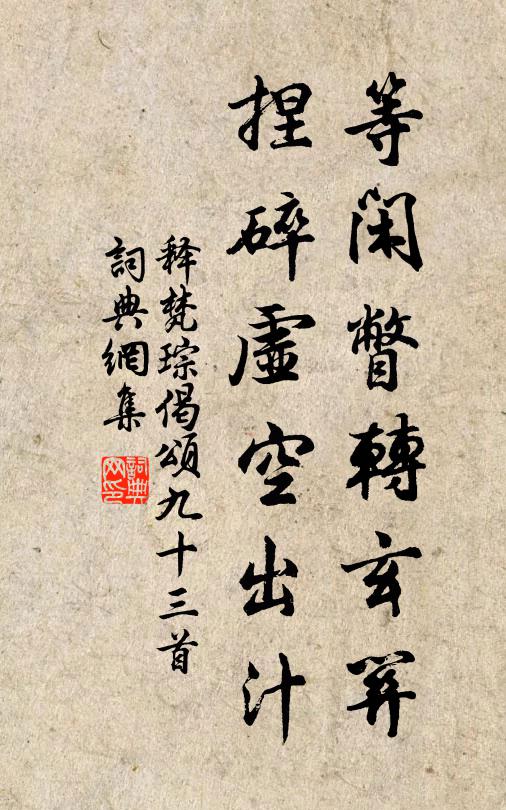 等閑瞥轉玄關
捏碎虛空出汁
释梵琮偈頌九十三首
詞典網集
詞典
网印